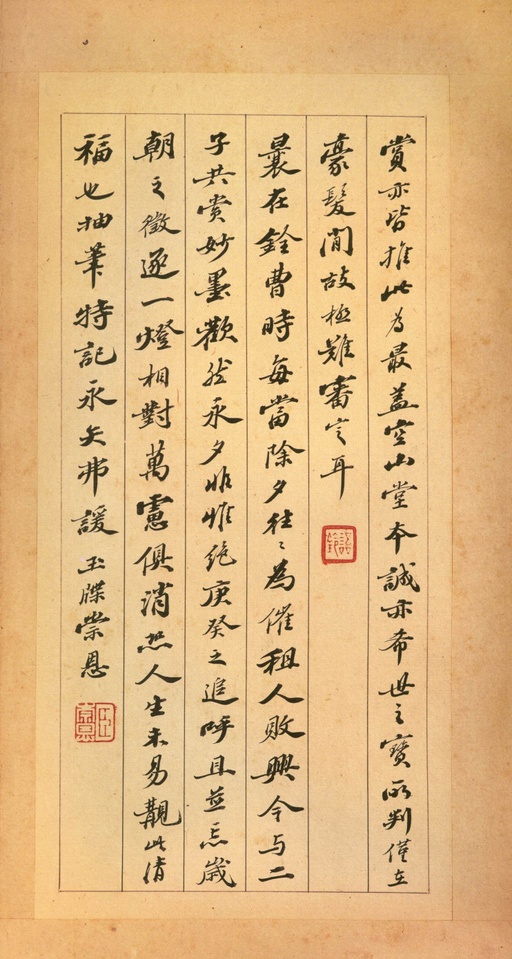 賞亦皆推此為最蓋空山堂本誠亦希世之寶所判僅在
豪髮間故極難審定耳
曩在銓曹時每當除夕往往為催租人敗興今与二
子共賞妙墨歡然永夕非惟絕庚癸之追呼且並忘歲
朝之徵逐一燈相對萬慮俱消然人生未易覯此清
福也抽筆特記永矢弗諼玉牒崇恩